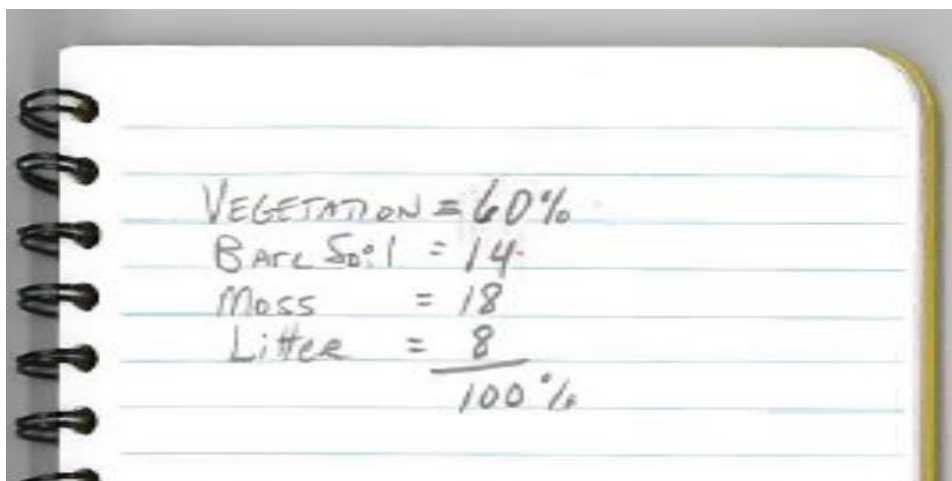 VEGETATION = 60%
Bare Soil = 14
Moss = 18
Litter = 8
100%